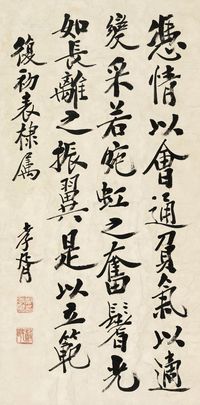 憑情以會通負氣以適
變采若宛虹之奮鬐光
如長離之振翼是以立範
復初表棣屬
孝胥